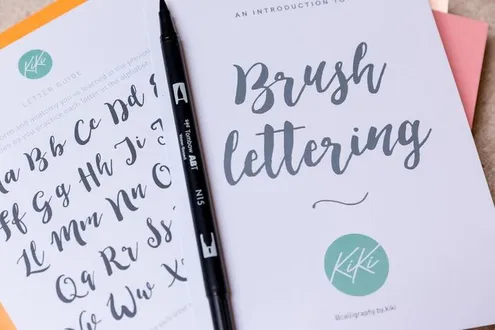 KiKi
LETTER GUIDE
Aa Bb Cc Dd
Ff Gg Hh Ii Jj
Ll Mm Nn
Qq Rr Ss
Ww X
Tombow ABT
N15
AN INTRODUCTION TO
Brush
lettering
KiKi